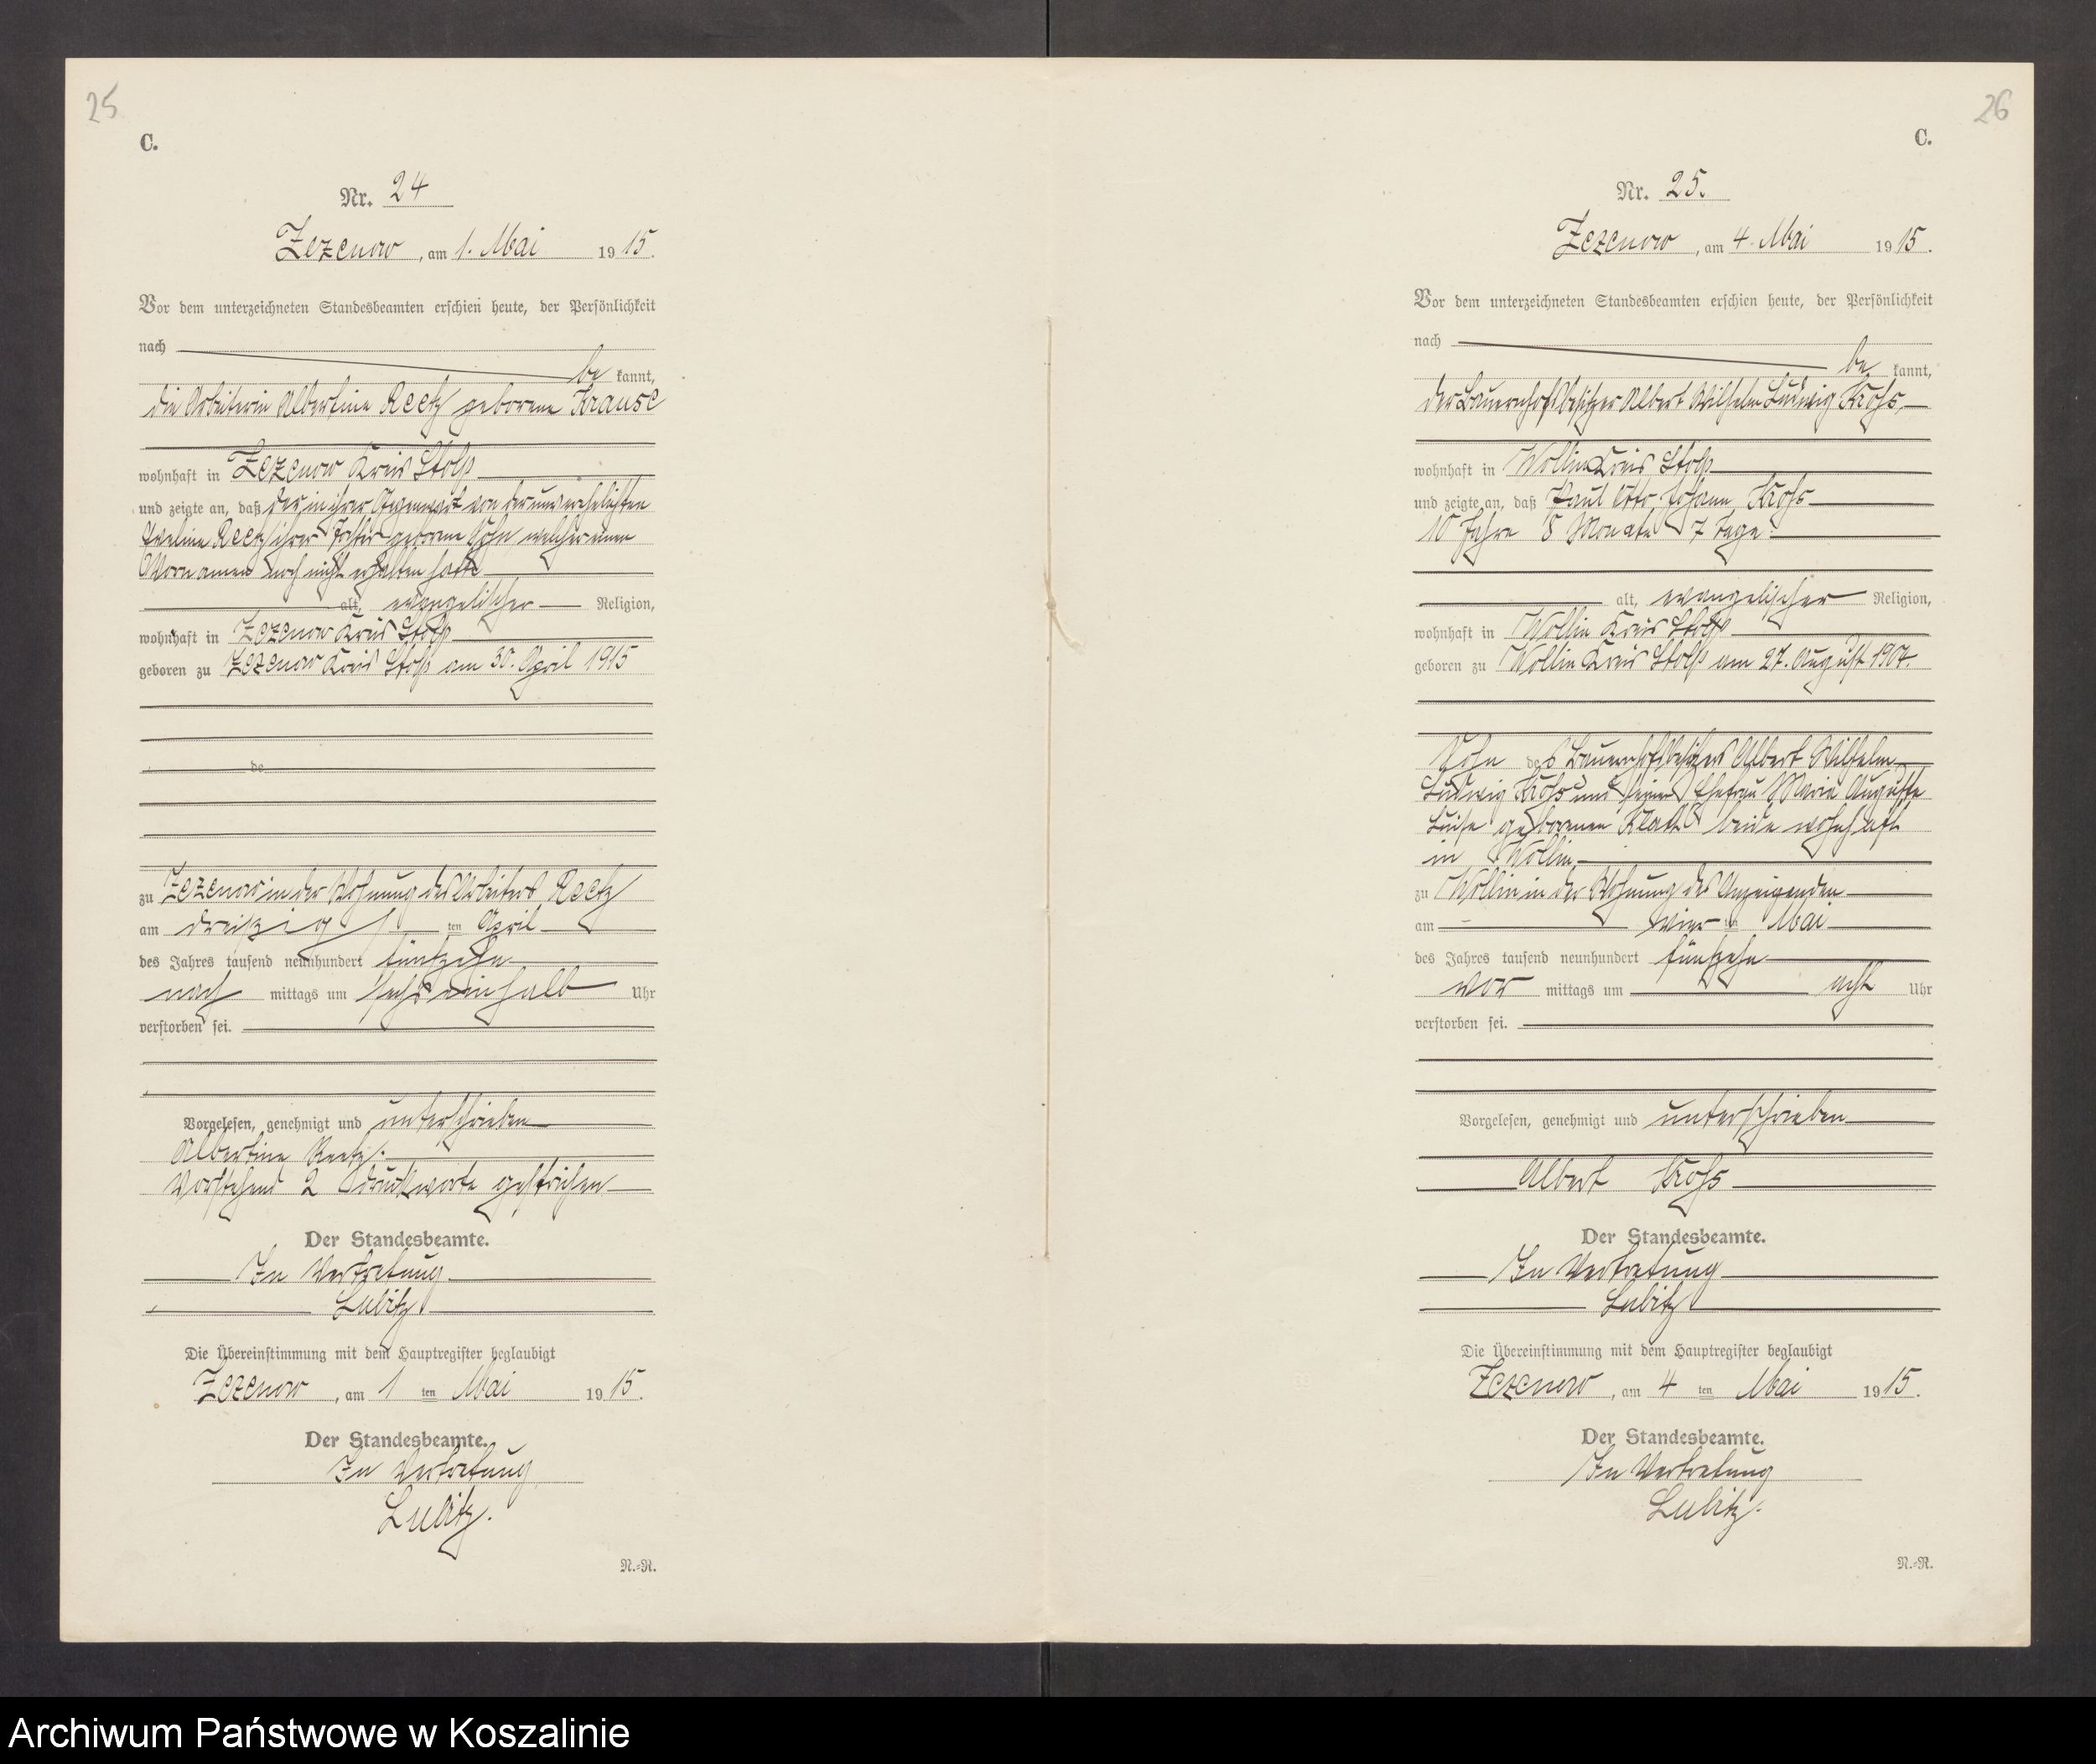 25
C.
Nr. 24
Zezenow, am 1. Mai 1915.
Vor dem unterzeichneten Standesbeamten erschien heute, der Persönlichkeit
nach
be kannt,
die Arbeiterin Albertine Reetz geborene Krause
wohnhaft in Zezenow Kreis Stolp
und zeigte an, daß der in ihrer Gegenwart von der unverehelichten
Reetz ihrer Tochter geborene Sohn welcher einen
Vornamen noch nicht erhalten hatte
alt, evangelischer Religion,
wohnhaft in Zezenow Kreis Stolp
geboren zu Zezenow Kreis Stolp am 30. April 1915
de
zu Zezenow in der Wohnung des Arbeiters Reetz
am dreißigsten April
des Jahres tausend neunhundert fünfzehn
nach mittags um sechs einhalb Uhr
verstorben sei.
Vorgelesen, genehmigt und unterschrieben
Albertine Reetz.
Vorstehend 2 Druckworte gestrichen
Der Standesbeamte.
In Vertretung
Lubitz
Die Übereinstimmung mit dem Hauptregister beglaubigt
Zezenow, am 1 ten Mai 1915.
Der Standesbeamte.
In Vertretung
Lubitz.
N.=R.
26
C.
Nr. 25.
Zezenow, am 4. Mai 1915.
Vor dem unterzeichneten Standesbeamten erschien heute, der Persönlichkeit
nach
be kannt,
der Bauernhofsbesitzer Albert Wilhelm Ludwig Kohs,
wohnhaft in Wollin Kreis Stolp
und zeigte an, daß Paul Otto Johann Kohs
10 Jahre 8 Monate 7 Tage
alt, evangelischer Religion,
wohnhaft in Wollin Kreis Stolp
geboren zu Wollin Kreis Stolp am 27. August 1904.
Sohn des Bauernhofsbesitzers Albert Wilhelm
Ludwig Kohs und seiner Ehefrau Marie Auguste
Luise geborenen Klatt beide wohnhaft
in Wollin
zu Wollin in der Wohnung des Anzeigenden
am vier ten Mai
des Jahres tausend neunhundert fünfzehn
vor mittags um acht Uhr
verstorben sei.
Vorgelesen, genehmigt und unterschrieben
Albert Kohs
Der Standesbeamte.
In Vertretung
Lubitz
Die Übereinstimmung mit dem Hauptregister beglaubigt
Zezenow, am 4 ten Mai 1915.
Der Standesbeamte.
In Vertretung
Lubitz.
N.=R.
Archiwum Państwowe w Koszalinie